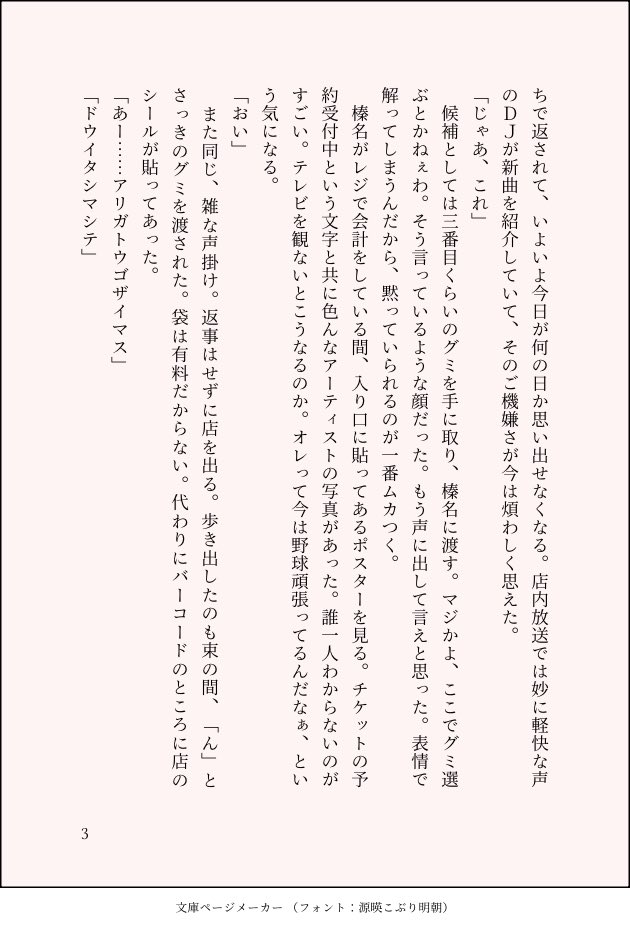 ちで返されて、いよいよ今日が何の日か思い出せなくなる。店内放送では妙に軽快な声
のＤＪが新曲を紹介していて、そのご機嫌さが今は煩わしく思えた。
「じゃあ、これ」
　候補としては三番目くらいのグミを手に取り、榛名に渡す。マジかよ、ここでグミ選
ぶとかねぇわ。そう言っているような顔だった。もう声に出して言えと思った。表情で
解ってしまうんだから、黙っていられるのが一番ムカつく。
　榛名がレジで会計をしている間、入り口に貼ってあるポスターを見る。チケットの予
約受付中という文字と共に色んなアーティストの写真があった。誰一人わからないのが
すごい。テレビを観ないとこうなるのか。オレって今は野球頑張ってるんだなぁ、とい
う気になる。
「おい」
　また同じ、雑な声掛け。返事はせずに店を出る。歩き出したのも束の間、「ん」と
さっきのグミを渡された。袋は有料だからない。代わりにバーコードのところに店の
シールが貼ってあった。
「あー……アリガトウゴザイマス」
「ドウイタシマシテ」
3
文庫ページメーカー （フォント：源暎こぶり明朝）